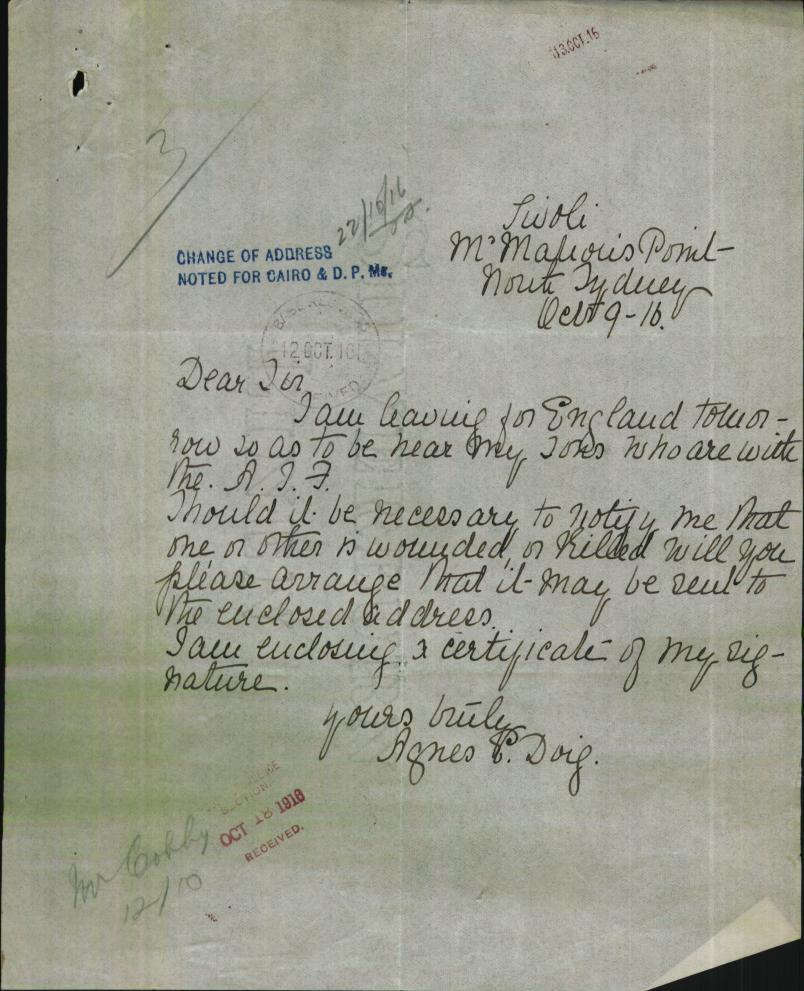 13.OCT.16
3
22/10/16
CHANGE OF ADDRESS
NOTED FOR CAIRO & D. P. Ms.
Tivoli
McMahons Point
North Sydney
Oct 9-16.
12 OCT. 16
Dear Sir
I am leaving for England tomor-
row so as to be near my sons who are with
the. A. I. F.
Should it be necessary to notify me that
one or other is wounded, or killed will you
please arrange that it may be sent to
the enclosed address.
I am enclosing a certificate of my sig-
nature.
yours truly
Agnes P. Doig.
SECTION.
OCT 18 1916
RECEIVED.
Mr Corby
12/10